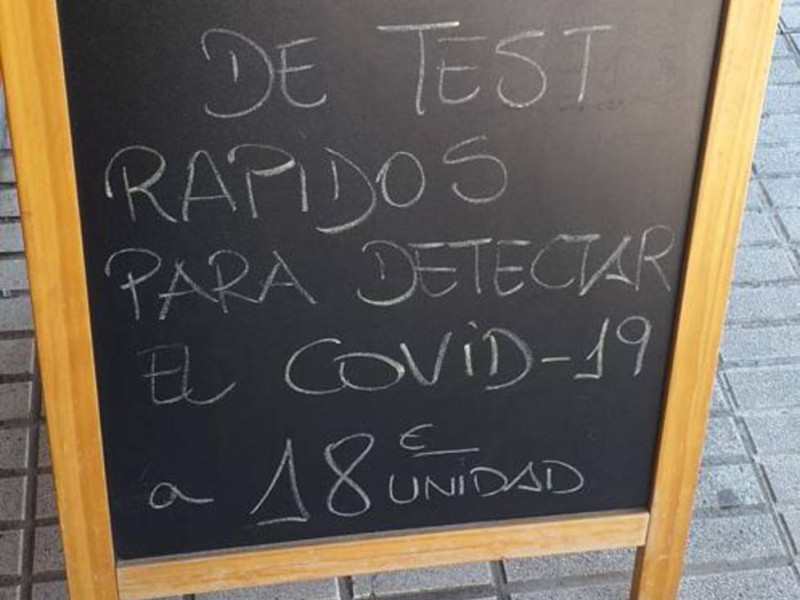 DE TEST
RAPIDOS
PARA DETECTAR
EL COVID-19
a 18€ UNIDAD